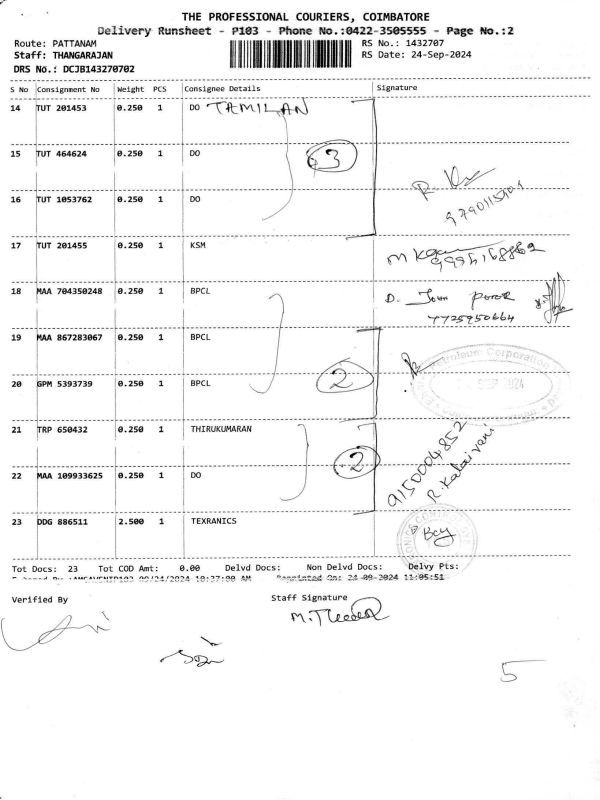 THE PROFESSIONAL COURIERS, COIMBATORE
Delivery Runsheet - P103 - Phone No.:0422-3505555 - Page No.:2
Route: PATTANAM RS No.: 1432707
Staff: THANGARAJAN RS Date: 24-Sep-2024
DRS No.: DCJB143270702
S No Consignment No Weight PCS Consignee Details Signature
14 TUT 201453 0.250 1 DO TAMILAN
15 TUT 464624 0.250 1 DO 3
16 TUT 1053762 0.250 1 DO
17 TUT 201455 0.250 1 KSM
18 MAA 704350248 0.250 1 BPCL D.
7725950664
19 MAA 867283067 0.250 1 BPCL
20 GPM 5393739 0.250 1 BPCL 2
Petroleum Corporation
SEP 2024
21 TRP 650432 0.250 1 THIRUKUMARAN
22 MAA 109933625 0.250 1 DO 2
9150004852
R. Kalaivani
23 DDG 886511 2.500 1 TEXRANICS
Tot Docs: 23 Tot COD Amt: 0.00 Delvd Docs: Non Delvd Docs: Delvy Pts:
09/24/2024 10:37:00 AM Reprinted On: 24-09-2024 11:05:51
Verified By Staff Signature
5